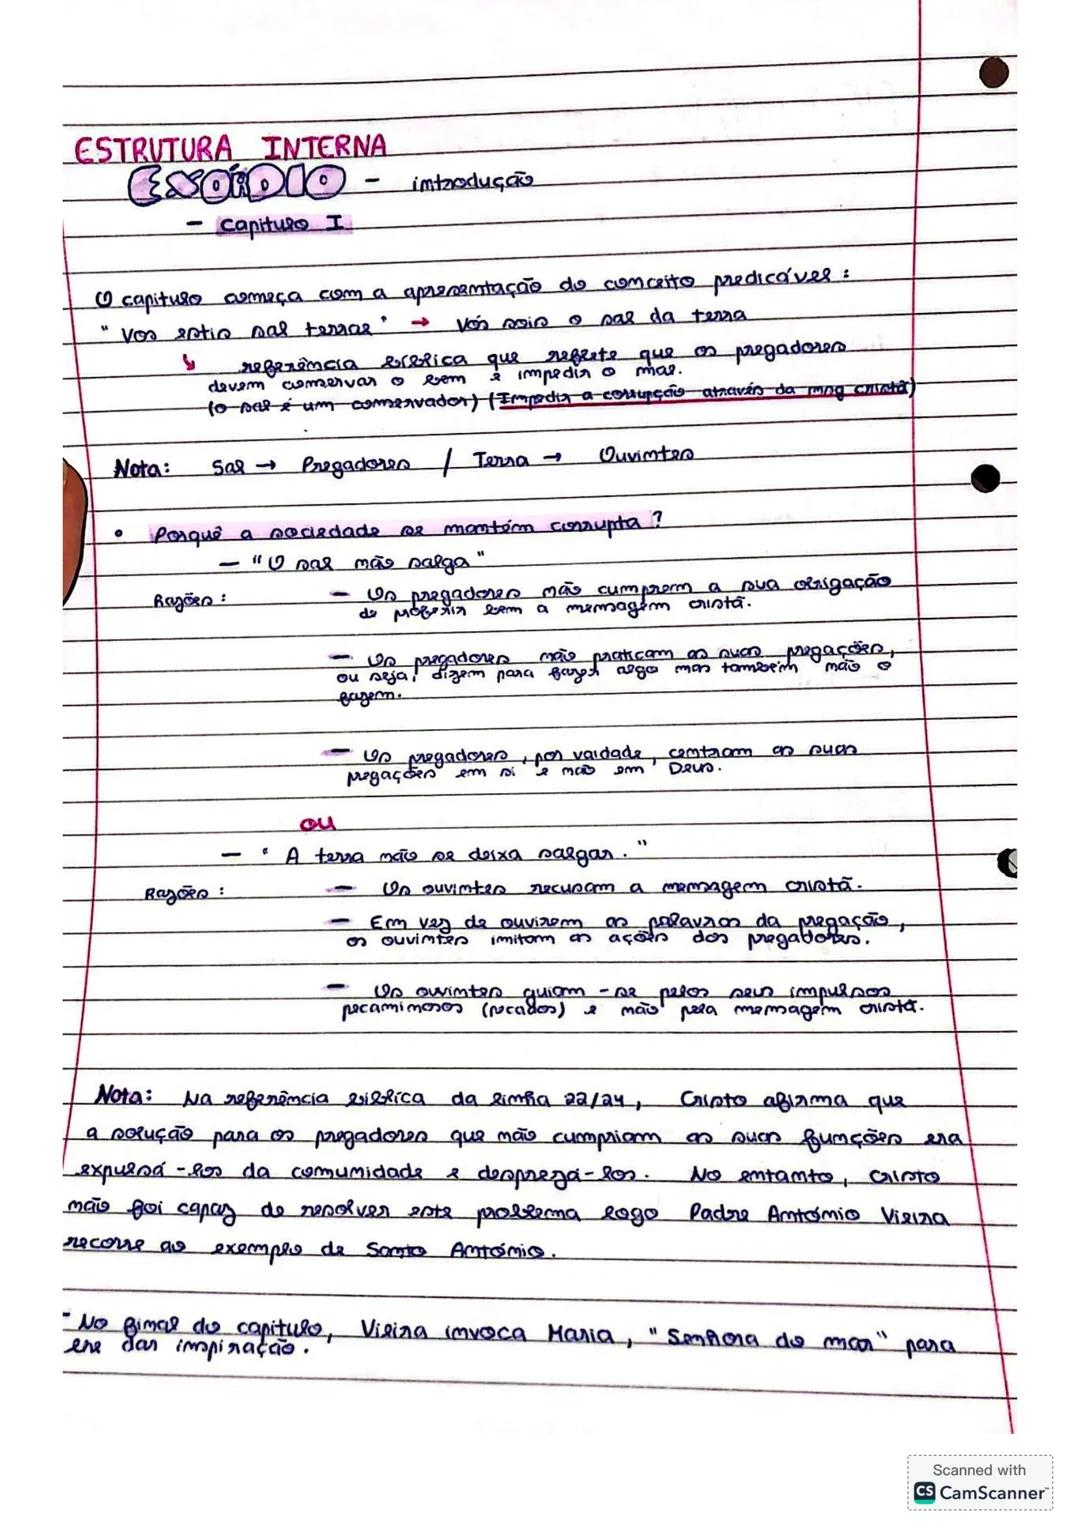 ESTRUTURA INTERNA
EXÓRDIO - introdução
- Capítulo I
O capítulo começa com a apresentação do conceito predicável :
" Vos estis sal terrae " → Vós sois o sal da terra
↳ referência bíblica que reflete que os pregadores
devem conservar o bem e impedir o mal.
(o sal é um conservador) (Impedir a corrupção através da msg cristã)
Nota: Sal → Pregadores / Terra → Ouvintes
• Porquê a sociedade se mantém corrupta ?
- "O sal não salga"
Razões : - Os pregadores não cumprem a sua obrigação
de proferir bem a mensagem cristã.
- Os pregadores não praticam as suas pregações,
ou seja, dizem para fazer algo mas também não o
fazem.
- Os pregadores, por vaidade, centram as suas
pregações em si e não em Deus.
ou
- " A terra não se deixa salgar. "
Razões : - Os ouvintes recusam a mensagem cristã.
- Em vez de ouvirem as palavras da pregação,
os ouvintes imitam as ações dos pregadores.
- Os ouvintes guiam-se pelos seus impulsos
pecaminosos (pecados) e não pela mensagem cristã.
Nota: Na referência bíblica da linha 22/24, Cristo afirma que
a solução para os pregadores que não cumpriam as suas funções era
expulsá-los da comunidade e desprezá-los. No entanto, Cristo
não foi capaz de resolver este problema logo Padre António Vieira
recorre ao exemplo de Santo António.
- No final do capítulo, Vieira invoca Maria, "Senhora do mar" para
lhe dar inspiração.
Scanned with
CS CamScanner